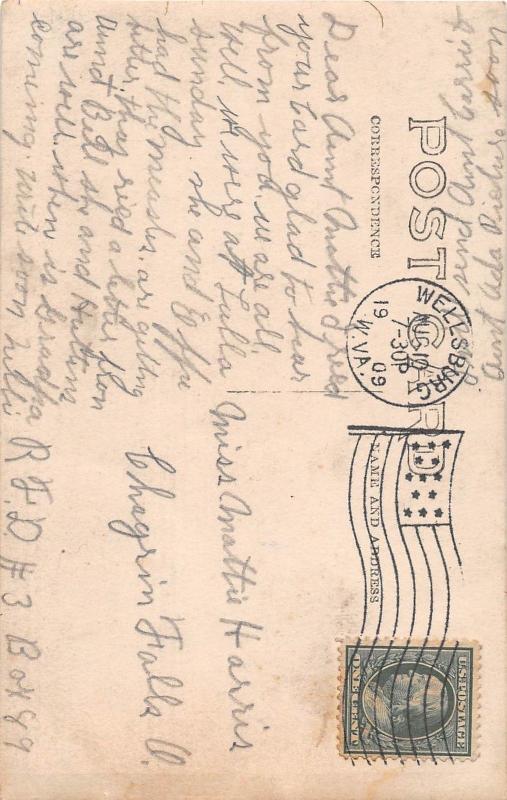 POST CARD
CORRESPONDENCE
NAME AND ADDRESS
WELLSBURG
AUG 10
7-30P
19 09
W.VA.
U.S. POSTAGE
ONE CENT
Aunt Carrie
Aunt Ada Picture soon
Dear Aunt Mattie I red
your card glad to hear
from you we are all
well. we were at Lulla
sunday she and Effie
had the measles. are getting
better, they ried a letter from
Aunt Bell she and
are well. when is Grandpa
coming. write soon
Miss Mattie Harris
Chagrin Falls O.
R F D # 3 Box 89